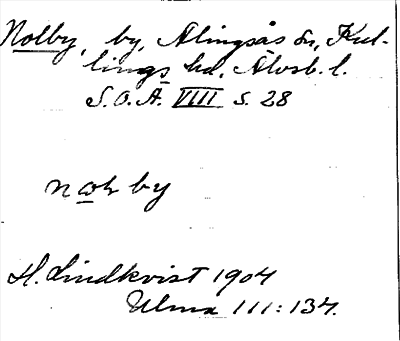 Nolby, by, Alingsås sn, Kul-
lings hd, Älvsb. l.
S.O.Ä. VIII s. 28
by
H. Lindkvist 1904
Ulma 111:134.